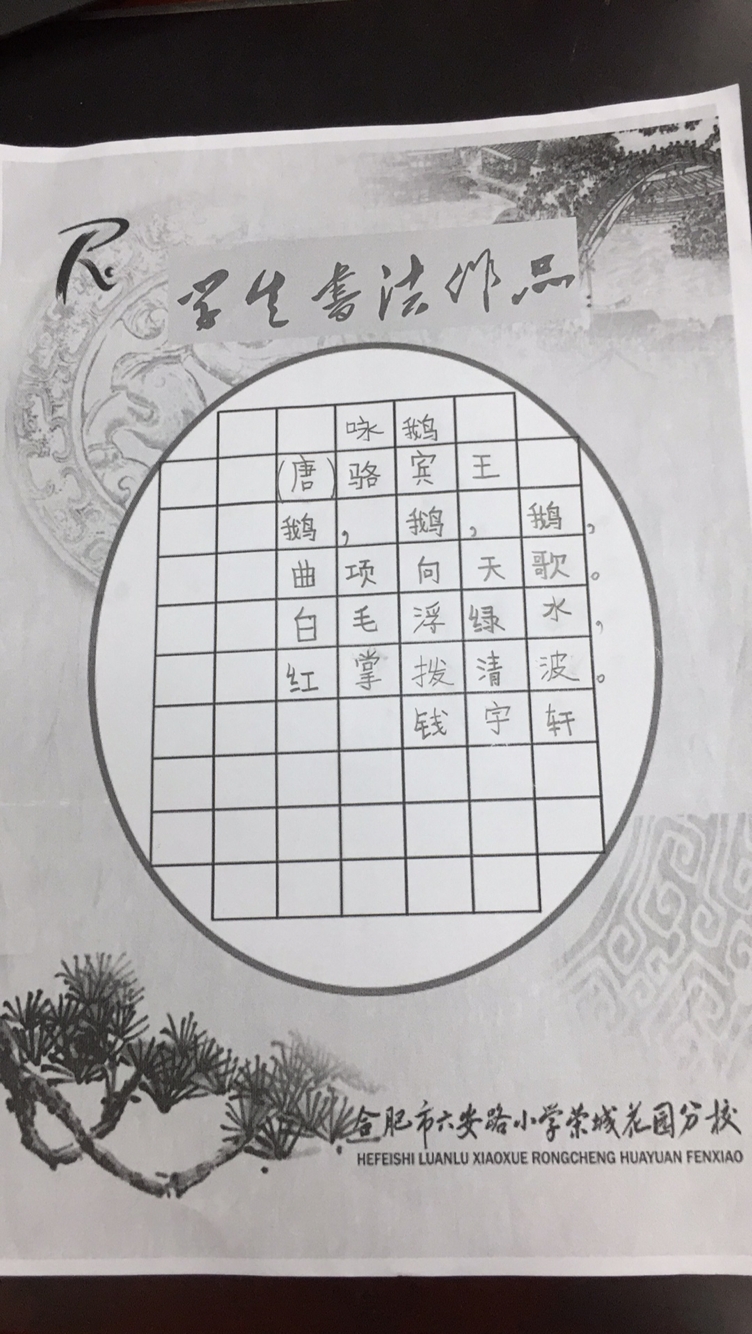 R
学生书法作品
咏鹅
(唐)骆宾王
鹅,鹅,鹅,
曲项向天歌。
白毛浮绿水,
红掌拨清波。
钱宇轩
合肥市六安路小学荣城花园分校
HEFEISHI LUANLU XIAOXUE RONGCHENG HUAYUAN FENXIAO